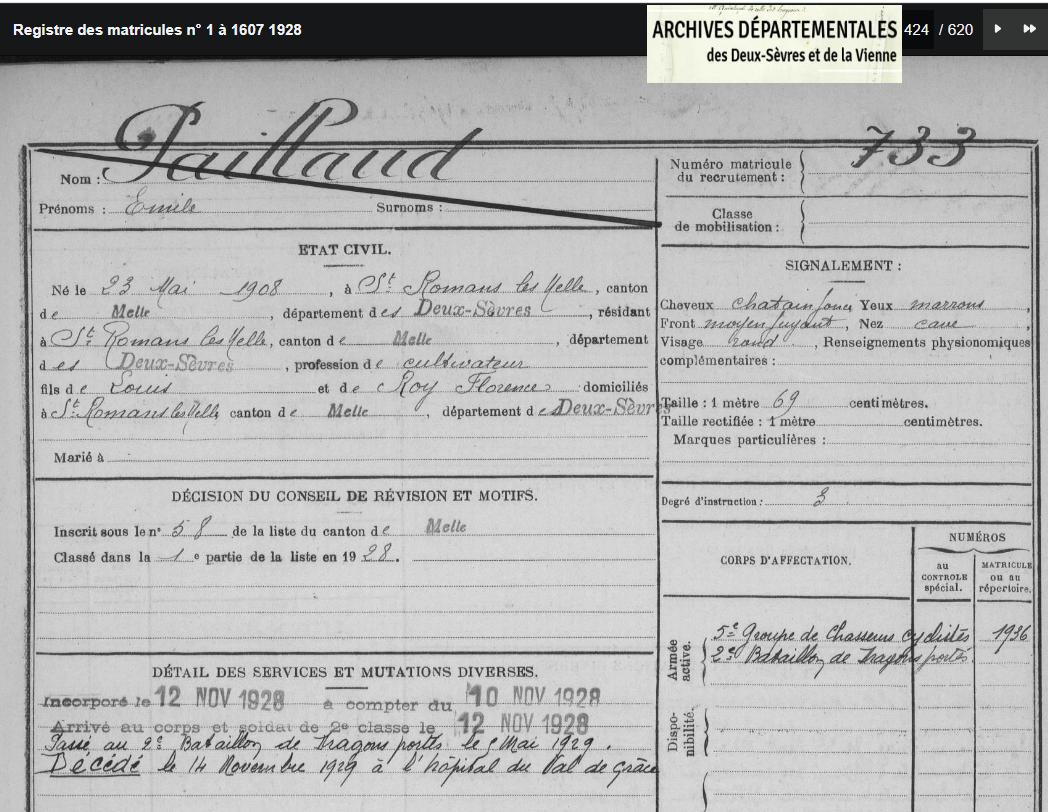 Registre des matricules n° 1 à 1607 1928
ARCHIVES DÉPARTEMENTALES
des Deux-Sèvres et de la Vienne
424 / 620
Nom : Paillaud
Prénoms : Emile Surnoms :
Numéro matricule du recrutement : 733
Classe de mobilisation :
ETAT CIVIL.
Né le 23 Mai 1908, à St Romans les Melle, canton
de Melle, département des Deux-Sèvres, résidant
à St Romans les Melle, canton de Melle, département
des Deux-Sèvres, profession de cultivateur
fils de Louis et de Roy Florence domiciliés
à St Romans les Melle, canton de Melle, département de Deux-Sèvres
Marié à
SIGNALEMENT :
Cheveux chatain foncé Yeux marrons,
Front moyen fuyant, Nez cave,
Visage rond, Renseignements physionomiques
complémentaires :
Taille : 1 mètre 69 centimètres.
Taille rectifiée : 1 mètre centimètres.
Marques particulières :
Degré d'instruction : 3
DÉCISION DU CONSEIL DE RÉVISION ET MOTIFS.
Inscrit sous le n° 58 de la liste du canton de Melle
Classé dans la 1e partie de la liste en 1928.
CORPS D'AFFECTATION.
NUMÉROS
au CONTROLE spécial.
MATRICULE ou au répertoire.
Armée active.
5e Groupe de Chasseurs cyclistes 1936
2e Bataillon de Dragons portés
Disponibilité.
DÉTAIL DES SERVICES ET MUTATIONS DIVERSES.
Incorporé le 12 NOV 1928 à compter du 10 NOV 1928
Arrivé au corps et soldat de 2e classe le 12 NOV 1928
Passé au 2e Bataillon de Dragons portés le Mai 1929.
Décédé le 14 Novembre 1929 à l'hôpital du Val de Grâce